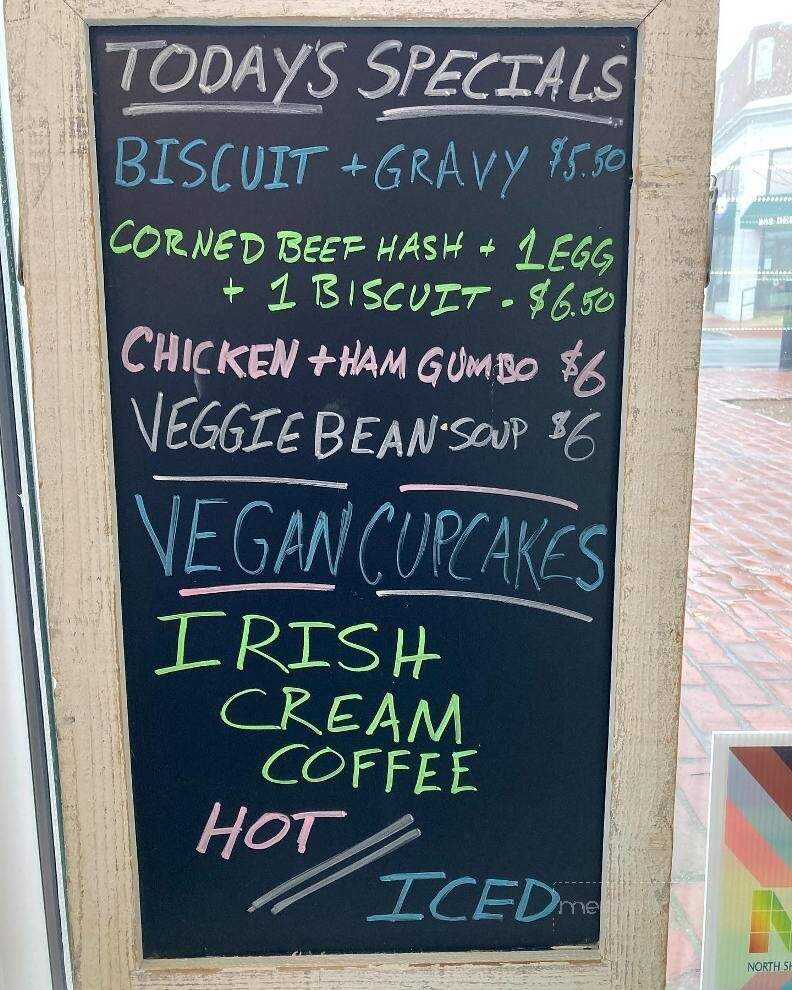 TODAY'S SPECIALS
BISCUIT + GRAVY $5.50
CORNED BEEF HASH + 1 EGG
+ 1 BISCUIT - $6.50
CHICKEN + HAM GUMBO $6
VEGGIE BEAN SOUP $6
VEGAN CUPCAKES
IRISH
CREAM
COFFEE
HOT //
ICED
NORTH